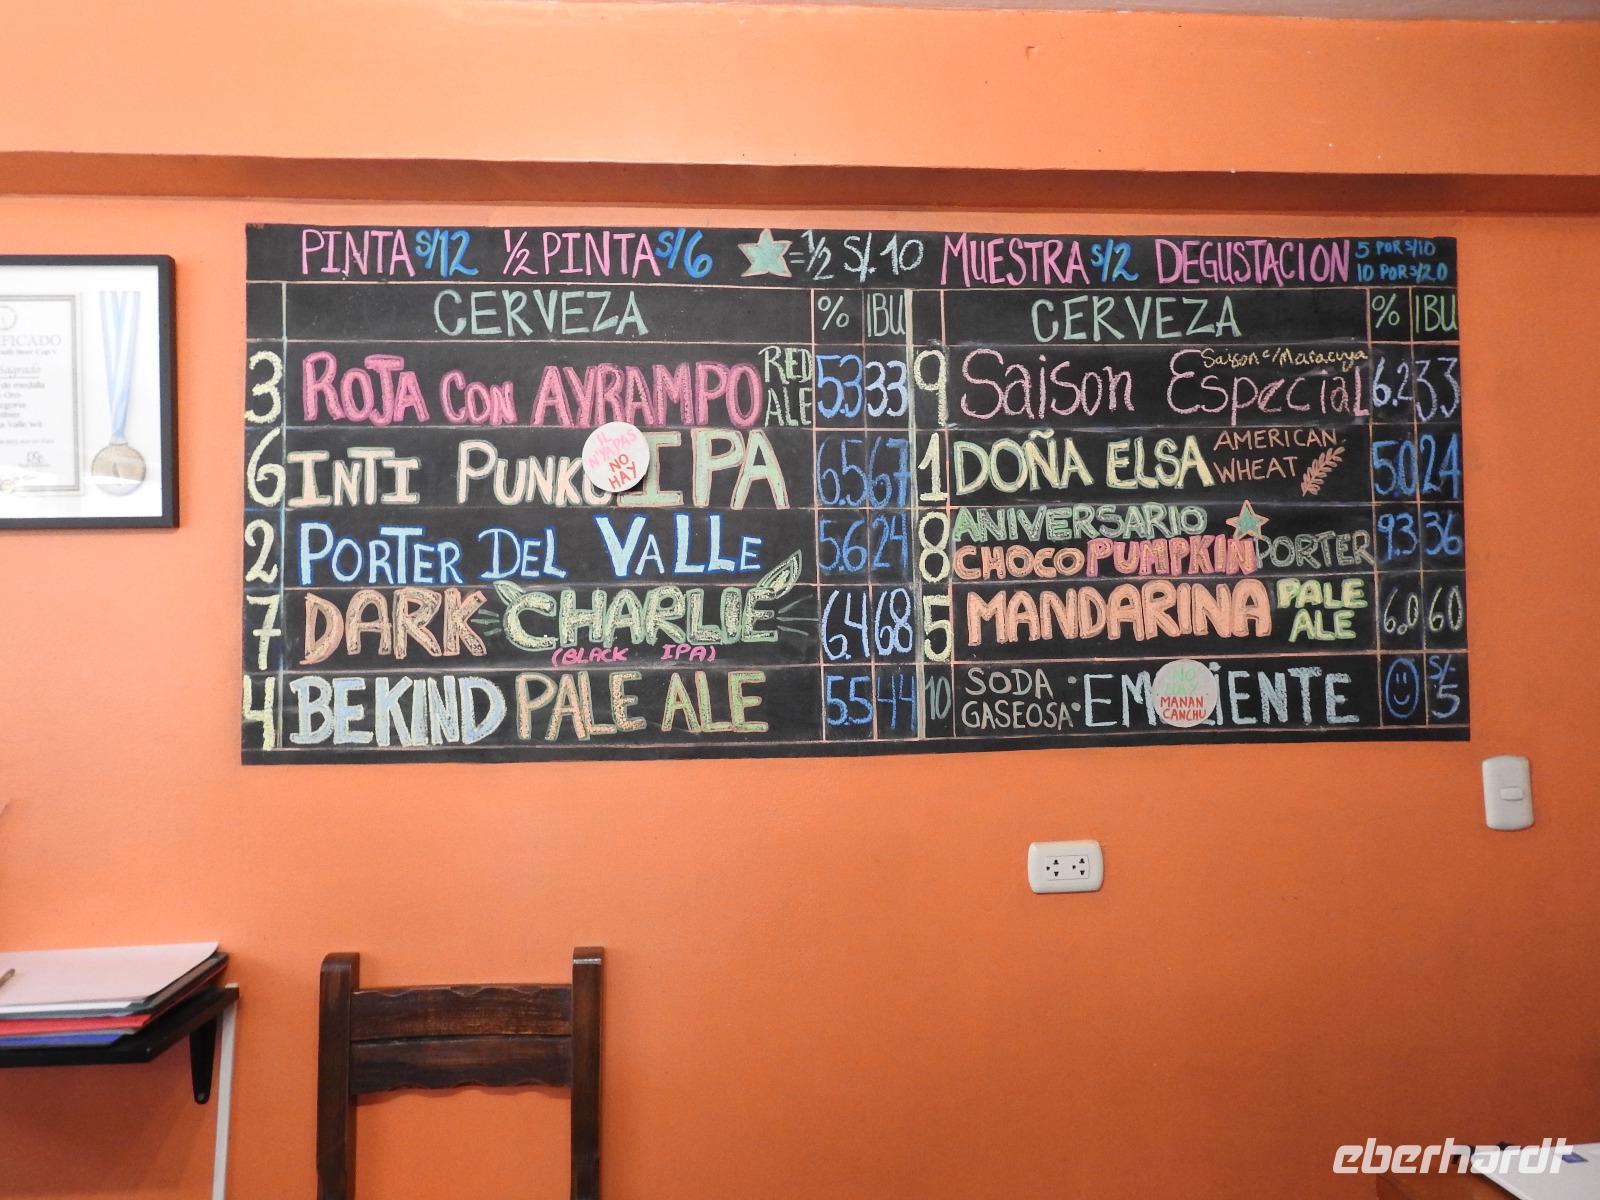 PINTA S/12 ½ PINTA S/6 ★=½ S/.10 MUESTRA S/2 DEGUSTACION 5 POR S/10
10 POR S/20
CERVEZA % IBU
3 ROJA CON AYRAMPO RED ALE 5.3 33
6 INTI PUNKU IPA 6.5 67
IL
N'YA PAS
NO
HAY
2 PORTER DEL VALLE 5.6 24
7 DARK CHARLIE 6.4 68
(BLACK IPA)
4 BEKIND PALE ALE 5.5 44
CERVEZA % IBU
9 Saison Especial Saison c/Maracuya 6.2 33
1 DOÑA ELSA AMERICAN WHEAT 5.0 24
8 ANIVERSARIO ★
CHOCO PUMPKIN PORTER 9.3 36
5 MANDARINA PALE ALE 6.0 60
10 SODA GASEOSA: EM IENTE S/. 5
NO
HAY
MANAN
CANCHU
Sagrado
de medalla
eberhardt